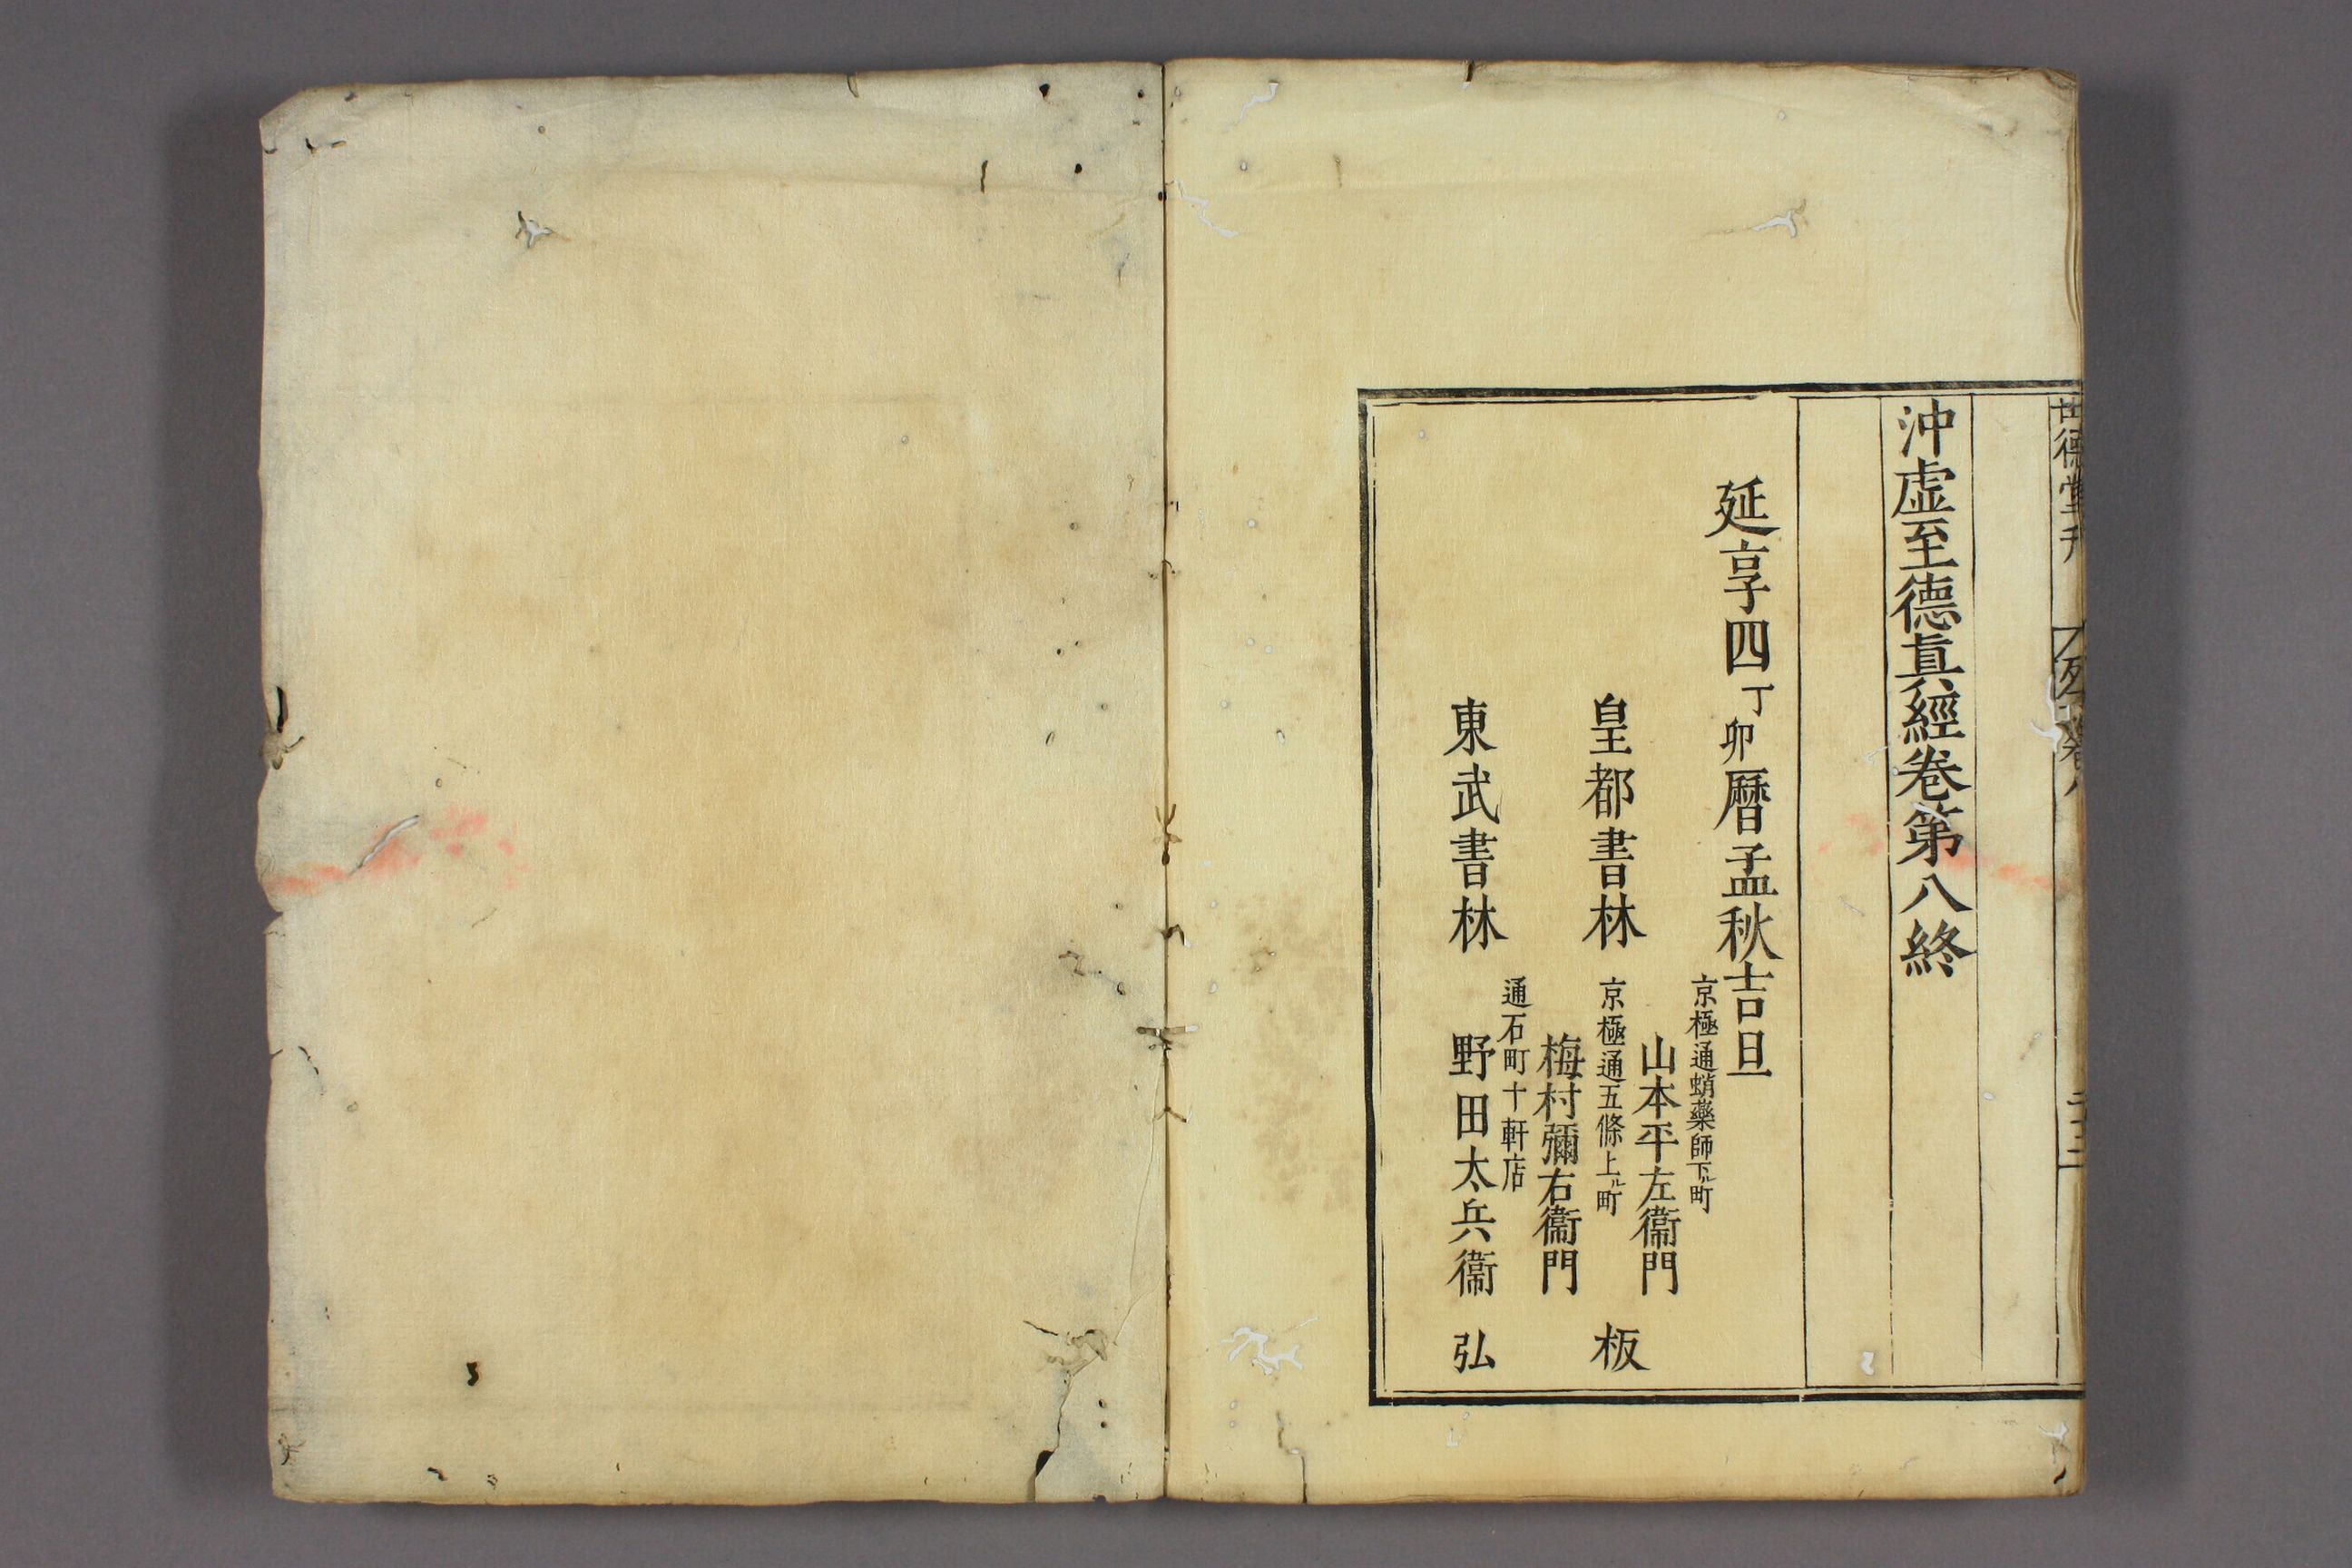 世德堂刊
沖虚至德眞經卷第八終
延享四丁卯曆孟秋吉旦
皇都書林
京極通蛸藥師下ル町
山本平左衞門
京極通五條上ル町
梅村彌右衞門
板
東武書林
通石町十軒店
野田太兵衞
弘